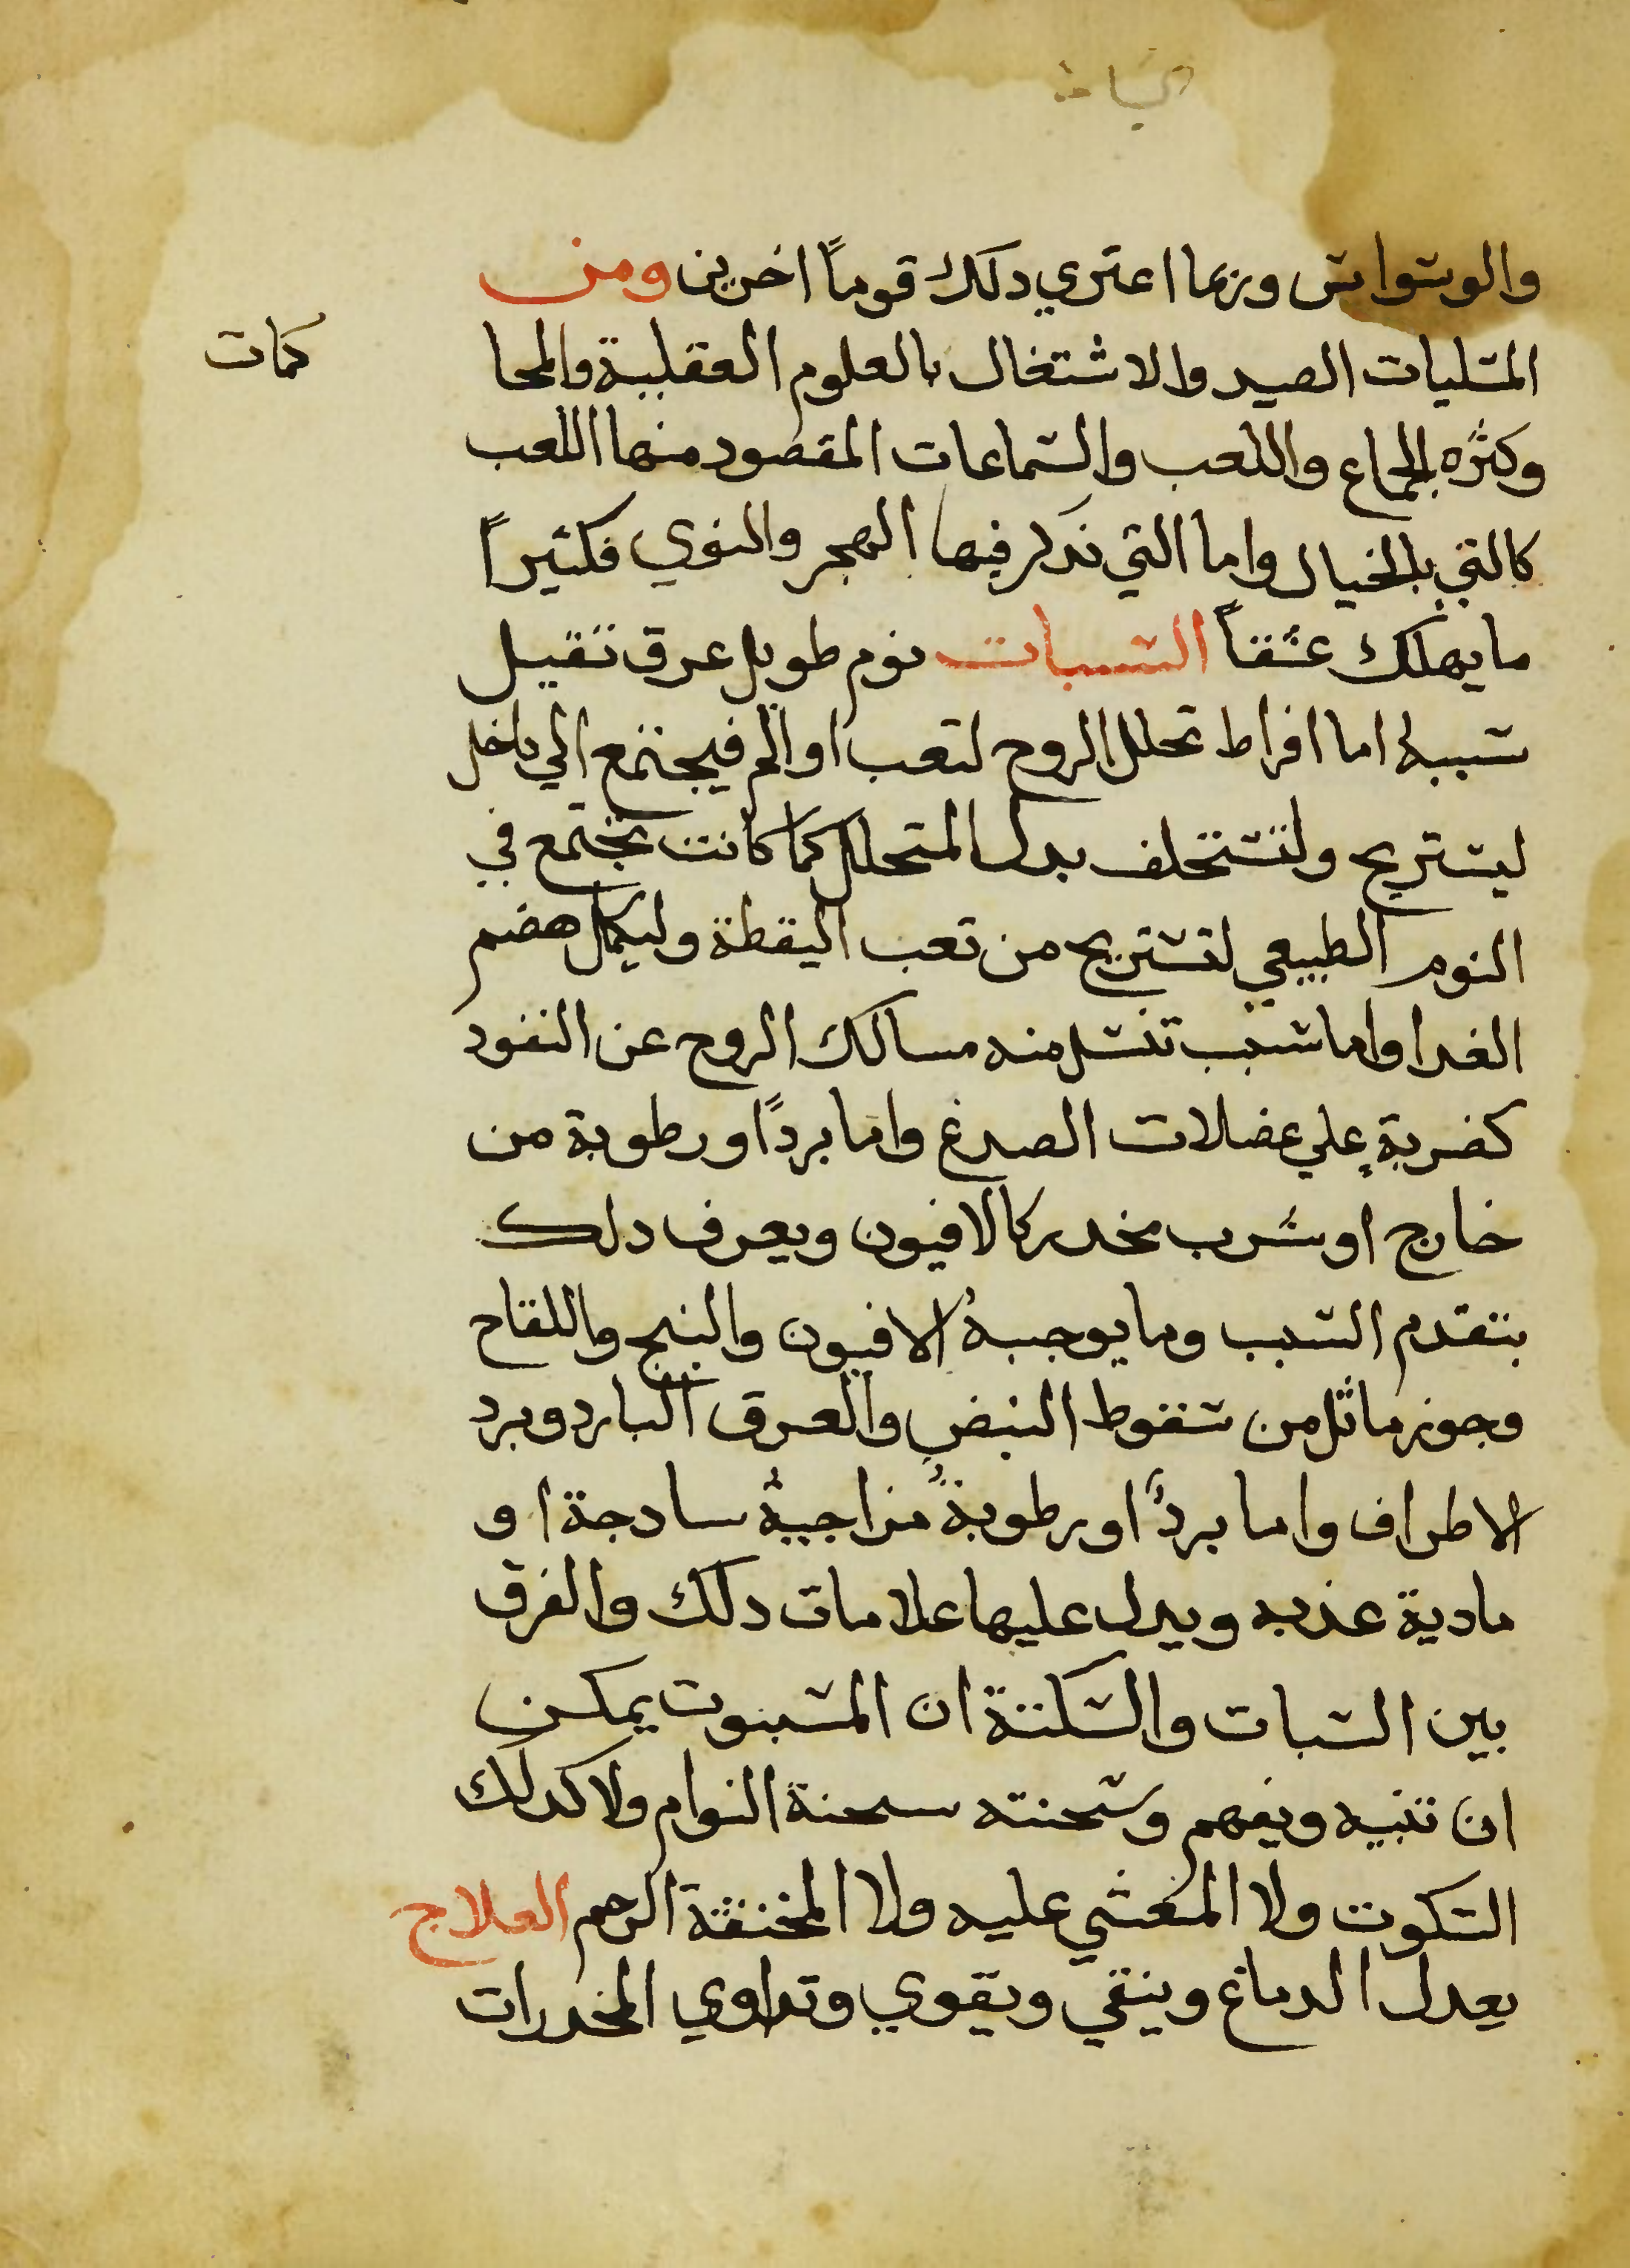 والوسواس وربما اعتري دلك قوماً اخرين ومن
المسليات الصيد والاشتغال بالعلوم العقلية والمحا
كمات
وكثره الجماع واللعب والسماعات المقصود منها اللعب
كالتي بالخيال واما التي نذكر فيها الهجر والنوي فكثيراً
ما يهلك عشقاً السبات نوم طويل غرق ثقيل
سببه اما افراط تحلل الروح لتعب او الم فيجتمع الي داخل
ليستريح ولتستخلف بدل المتحلل كما كانت تجتمع في
النوم الطبيعي لتستريح من تعب اليقظة وليكمل هضم
الغدا واما سبب تنسد منه مسالك الروح عن النفود
كضربة علي عضلات الصدغ واما برداً ورطوبة من
خارج او شرب مخدر كالافيون ويعرف دلك
بتقدم السبب وما يوجبه الافيون والبنج واللقاح
وجوز ماثل من سقوط النبض والعرق البارد وبرد
الاطراف واما بردٌ او رطوبةٌ مزاجية سادجة او
مادية عذبه ويدل عليها علامات دلك والفرق
بين السبات والسكتة ان المسبوت يمكن
ان تنبيه ويفهم وسحنته سحنة النوام ولا كدلك
السكوت ولا المغشي عليه ولا المختنقة الرحم العلاج
يعدل الدماغ وينقي ويقوي وتداوي المخدرات